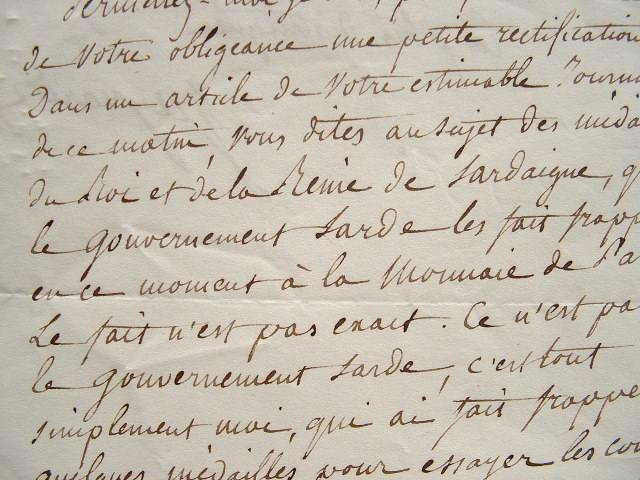 Permettez-moi
de votre obligeance une petite rectification
Dans un article de votre estimable Journ
de ce matin, vous dites au sujet des méda
du Roi et de la Reine de Sardaigne, q
le gouvernement Sarde les fait frapp
en ce moment à la Monnaie de Pa
Le fait n'est pas exact. Ce n'est pa
le gouvernement Sarde, c'est tout
simplement moi, qui ai fait frappe
quelques médailles pour essayer les coi